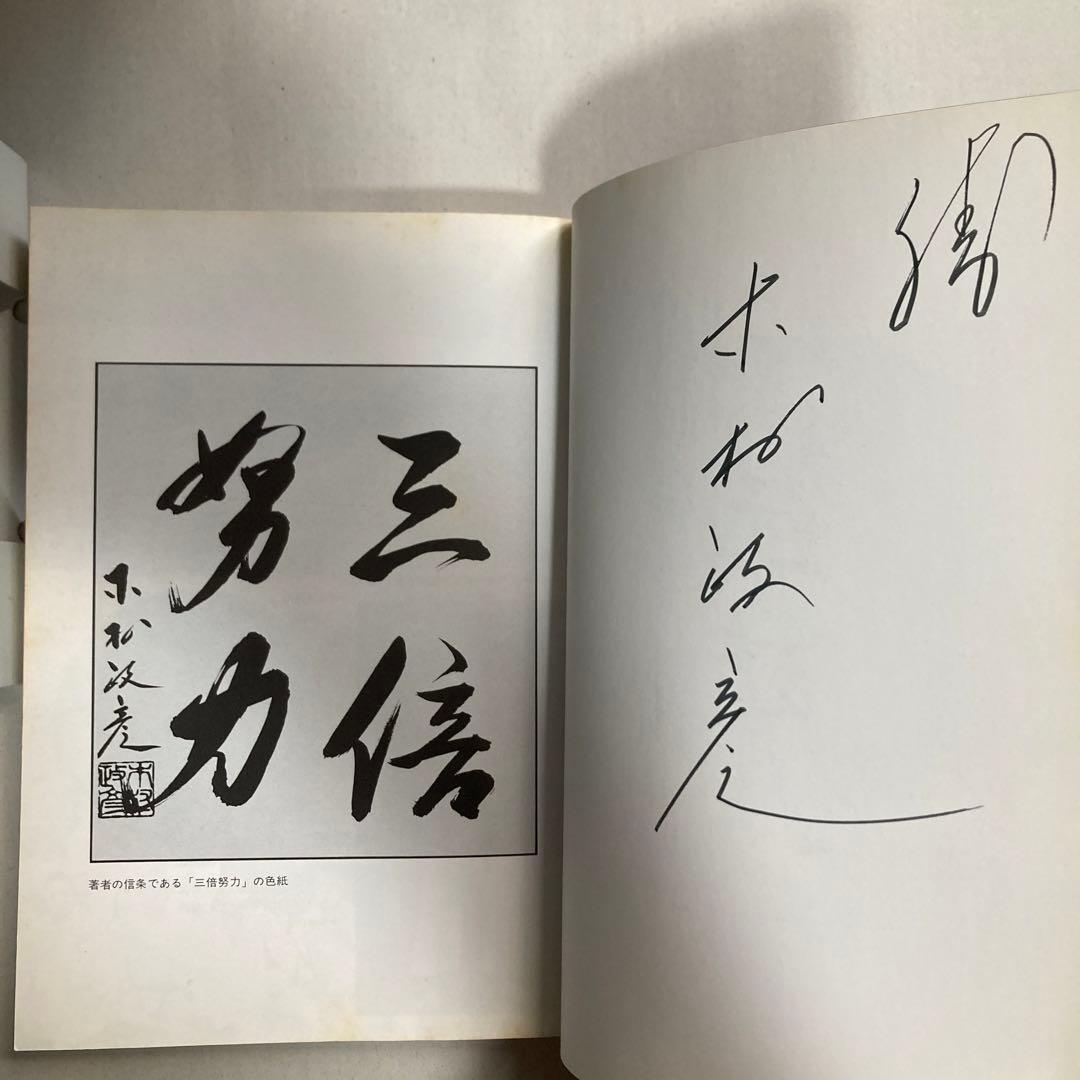 三倍
努力
木村政彦
木村
政彦
著者の信条である「三倍努力」の色紙
木村政彦